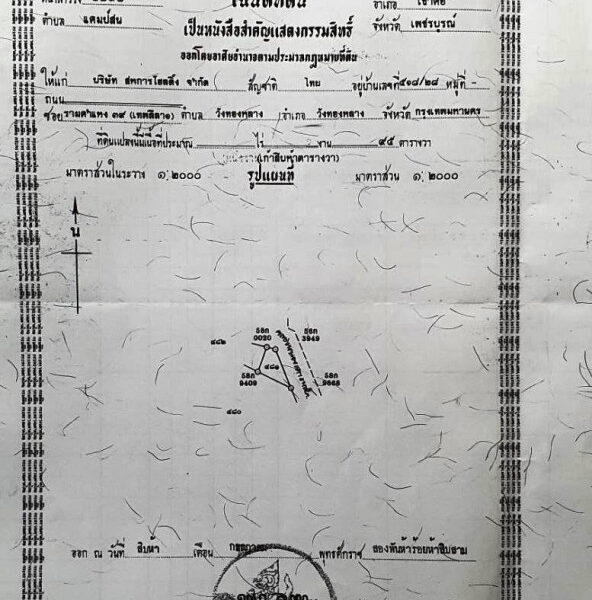 โฉนดที่ดิน
ตำบล แคมป์สน อำเภอ เขาค้อ
เป็นหนังสือสำคัญแสดงกรรมสิทธิ์ จังหวัด เพชรบูรณ์
ออกโดยอาศัยอำนาจตามประมวลกฎหมายที่ดิน
ให้แก่ บริษัท สหการโฮลดิ้ง จำกัด สัญชาติ ไทย อยู่บ้านเลขที่ ๕๑๘/๒๘ หมู่ที่
ถนน
ซอย รามคำแหง ๓๙ (เทพลีลา๑) ตำบล วังทองหลาง อำเภอ วังทองหลาง จังหวัด กรุงเทพมหานคร
ที่ดินแปลงนี้มีเนื้อที่ประมาณ ไร่ งาน ๙๕ ตารางวา
(เก้าสิบห้าตารางวา)
มาตราส่วนในระวาง ๑:๒๐๐๐ รูปแผนที่ มาตราส่วน ๑:๒๐๐๐
น
๔๘๒
58ก
0020
58ก
3949
๔๘๑
58ก
9409
58ก
9668
๔๘๐
ออก ณ วันที่ สิบห้า เดือน กรกฎาคม พุทธศักราช สองพันห้าร้อยห้าสิบสาม